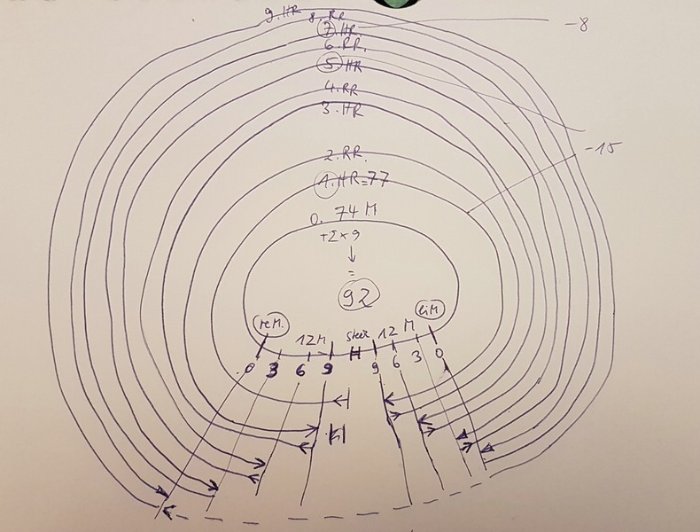 9. HR 8. RR
7. HR. -8
6. RR.
5 HR
4. RR
3. HR
2. RR. -15
1. HR=77
0. 74 M
+2x9
↓
=
92
reM. liM.
12M 12 M
0 3 6 9 H 9 6 3 0